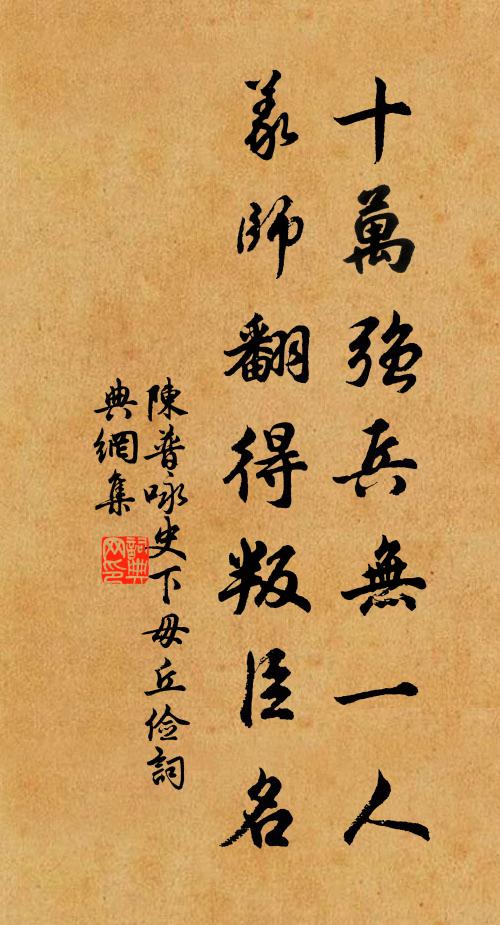 十萬強兵無一人
義師翻得叛臣名
陳普咏史下毋丘儉詞
典網集
詞典網印